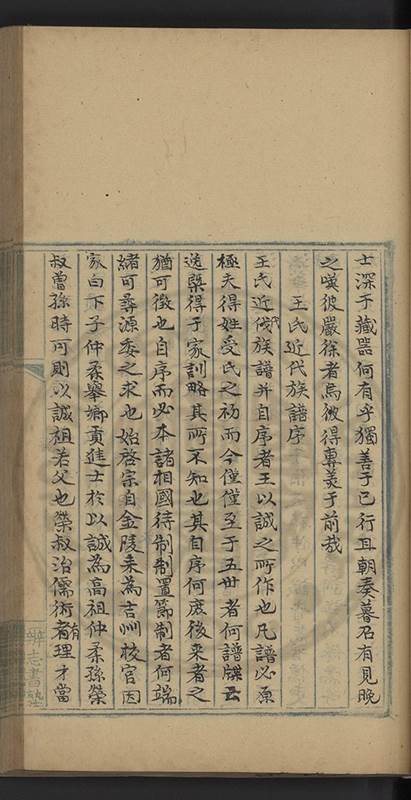 士深于藏噐何有乎獨善于已行且朝奏暮召有見晚
之嘆彼嚴徐者烏彼得專美于前哉
王氏近代族譜序
王氏近代族譜并自序者王以誠之所作也凡譜必原
極夫得姓受氏之初而今僅僅至于五世者何譜牒云
逸槩得于家訓略其所不知也其自序何庶後來者之
猶可徵也自序而必本諸相國待制制置節制者何端
緒可尋源委之求也始啓宗自金陵來為吉州校官因
家白下子仲柔舉鄉貢進士於以誠為高祖仲柔孫榮
叔曾孫時可則以誠祖若父也榮叔治儒術者有理才當
志書塾